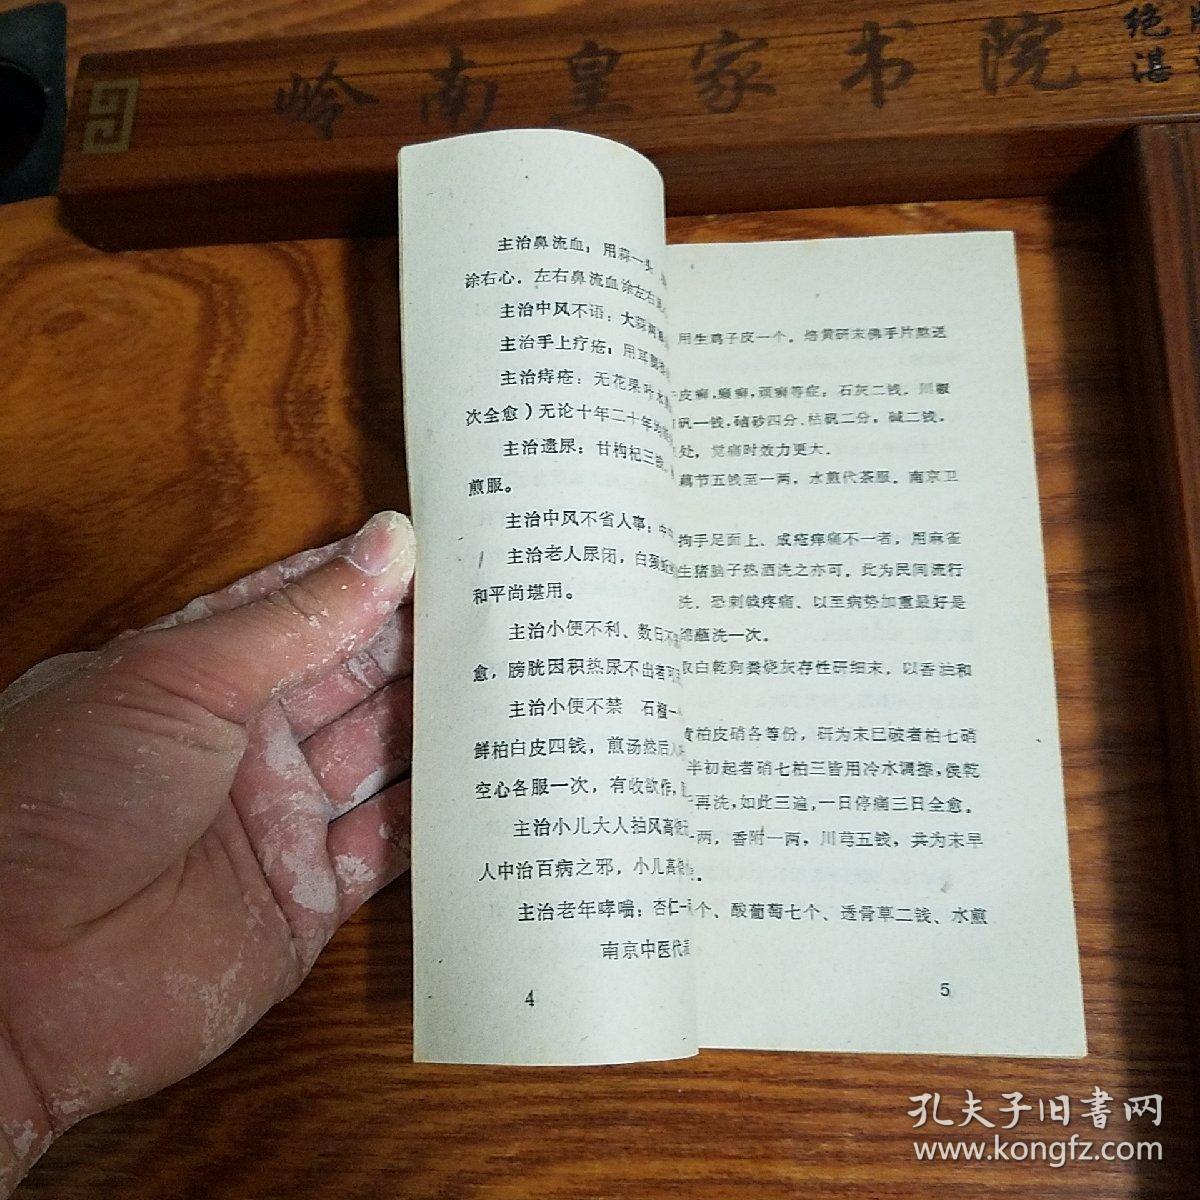 岭南皇家书院
绝
湛
主治鼻流血：用蒜一头
涂右心．左右鼻流血涂左右
主治中风不语：大蒜两
主治手上疔疮：用耳
主治痔疮：无花果叶水
次全愈）无论十年二十年的
主治遗尿：甘枸杞三钱
煎服。
主治中风不省人事：
主治老人尿闭，白颈
和平尚堪用。
主治小便不利、数日不
愈，膀胱因积热尿不出者可
主治小便不禁　石榴一
鲜柏白皮四钱，煎汤然后入
空心各服一次，有收欲作，
主治小儿大人抽风高烧
人中治百病之邪，小儿高烧
主治老年哮喘：杏仁一
南京中医代
4
用生鸡子皮一个．焙黄研末佛手片熬送
皮癣，癞癣，顽癣等症；石灰二钱．川椒
矾一钱，硇砂四分、枯矾二分，碱二钱．
处，觉痛时效力更大．
藕节五钱至一两，水煎代茶服．南京卫
拘手足面上、成疮痒痛不一者，用麻雀
生猪脑子热洒洗之亦可．此为民间流行
洗．恐刺戟疼痛、以至病势加重最好是
蘸洗一次．
取白乾狗粪烧灰存性研细末，以香油和
黄柏皮硝各等份，研为末已破者柏七硝
半初起者硝七柏三皆用冷水调搽，俟乾
再洗，如此三遍，一日停痛三日全愈．
一两，香附一两，川芎五钱，共为末早
个、酸葡萄七个、透骨草二钱、水煎
5
孔夫子旧書网
www.kongfz.com